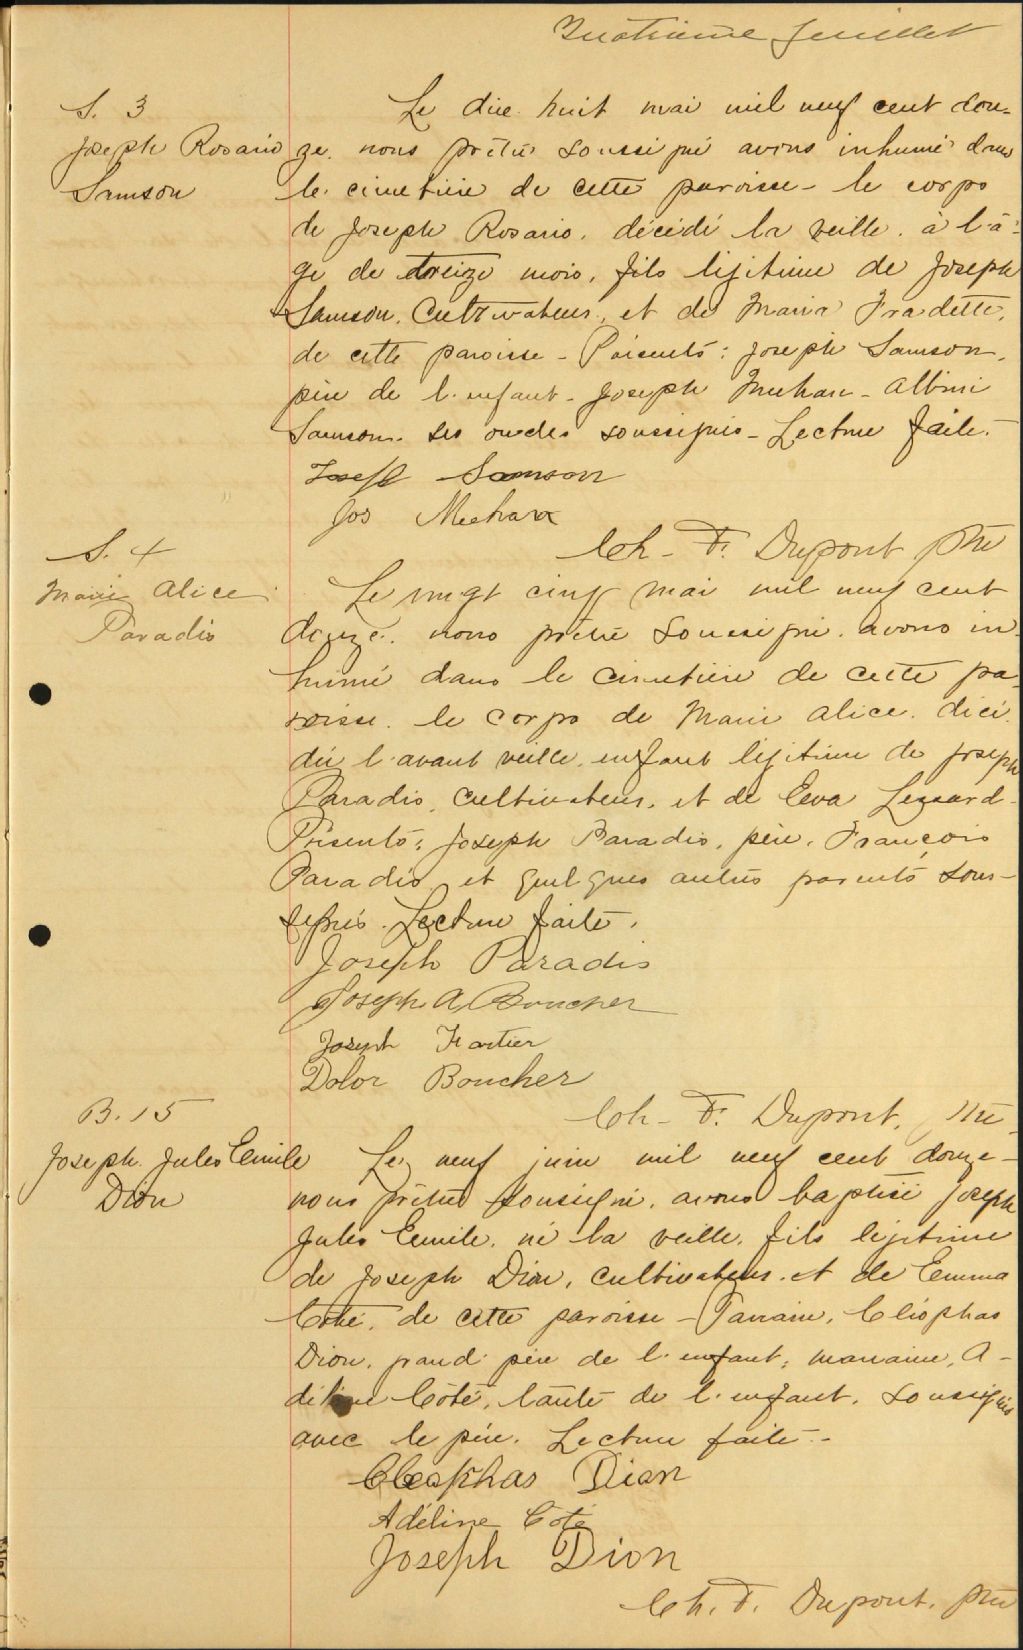 Quatrième feuillet
S. 3
Joseph Rosario
Samson
Le dix huit mai mil neuf cent dou-
ze. nous prêtre soussigné avons inhumé dans
le cimetière de cette paroisse - le corps
de Joseph Rosario, décédé la veille, à l'â-
ge de treize mois, fils légitime de Joseph
Samson, cultivateur, et de Maria Fradette,
de cette paroisse - Présents: Joseph Samson,
père de l'enfant - Joseph Meehan - Albini
Samson ses oncles soussignés - Lecture faite.
Josef Samson
Jos Meehan
Ch - F. Dupont ptre
S. 4
Marie Alice
Paradis
Le vingt cinq mai mil neuf cent
douze. nous prêtre soussigné. avons in
humé dans le cimetière de cette pa-
roisse. le corps de Marie Alice. décé
dée l'avant veille, enfant légitime de Joseph
Paradis, cultivateur, et de Eva Lessard -
Présents; Joseph Paradis, père, François
Paradis et quelques autres parents sous-
signés. Lecture faite.
Joseph Paradis
Joseph A Boucher
Joseph Fortier
Dolor Boucher
Ch - F. Dupont, ptre
B. 15
Joseph Jules Emile
Dion
Le neuf juin mil neuf cent douze -
nous prêtre soussigné, avons baptisé Joseph
Jules Emile, né la veille, fils légitime
de Joseph Dion, cultivateur et de Emma
Côté, de cette paroisse - Parrain, Cléophas
Dion, grand père de l'enfant; marraine, A -
deline Côté, tante de l'enfant, soussignés
avec le père. Lecture faite -
Cleophas Dion
Adéline Côté
Joseph Dion
Ch. F. Dupont, ptre